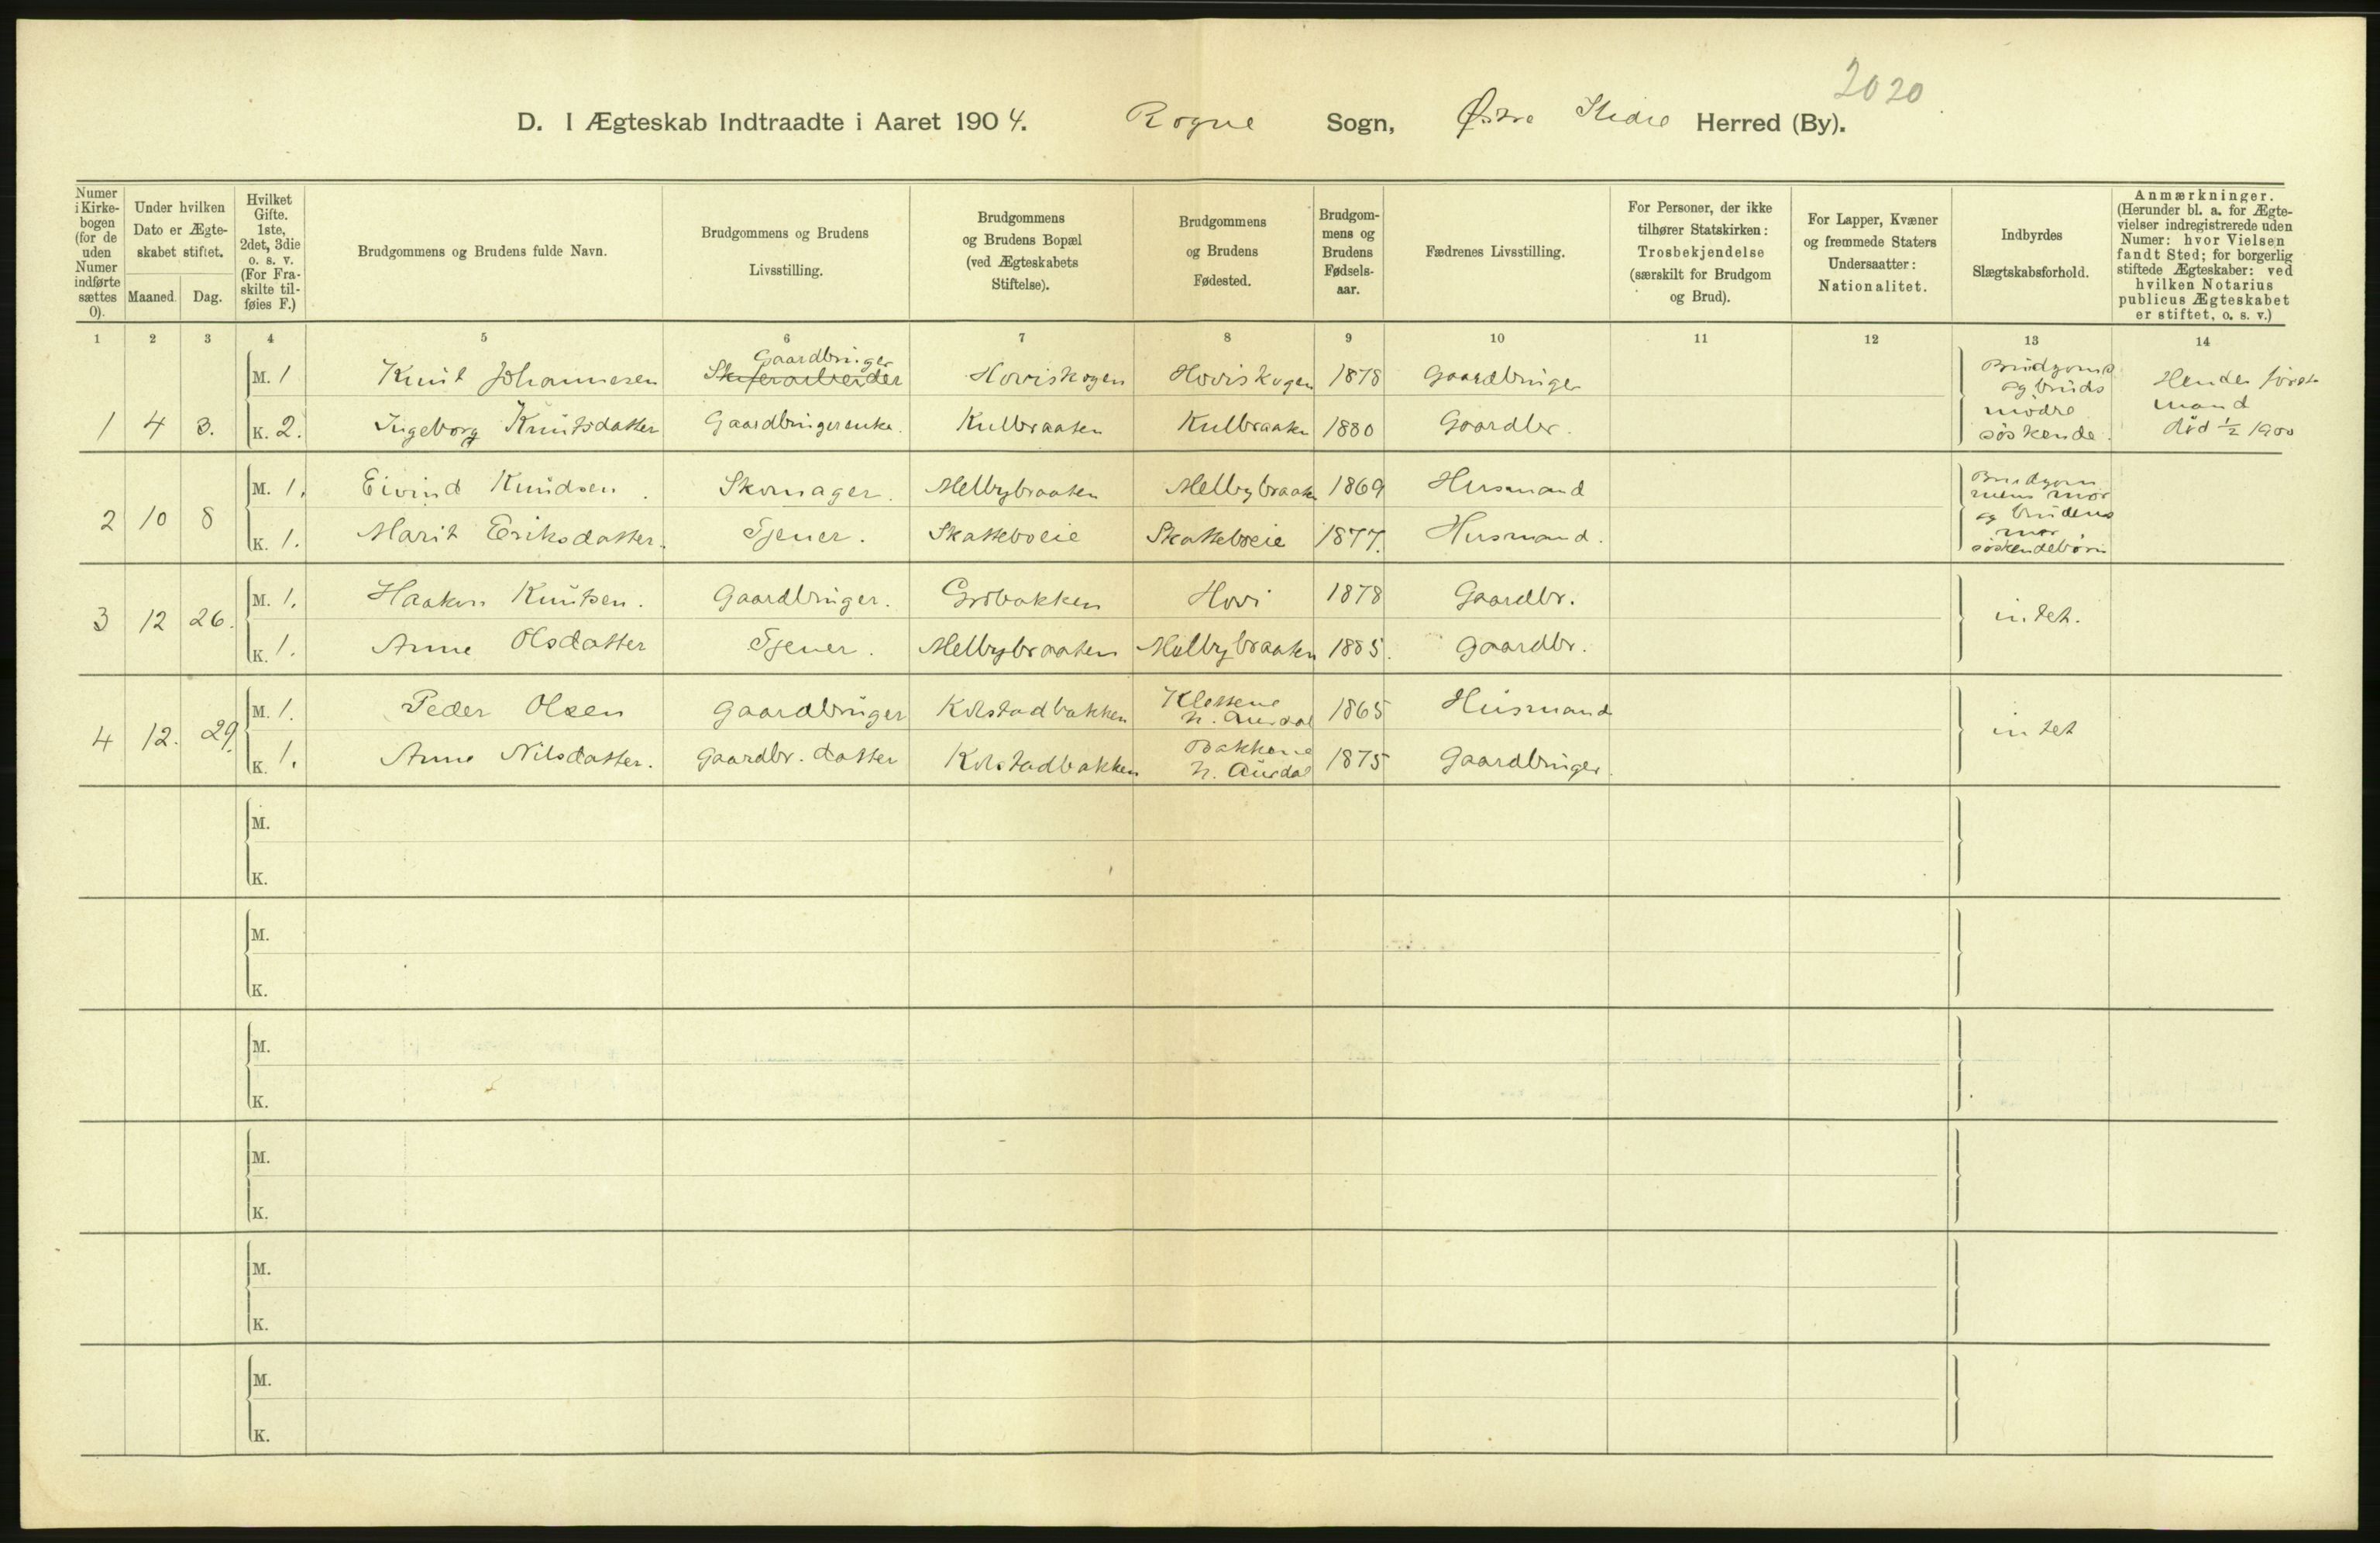 2020
D. I Ægteskab Indtraadte i Aaret 1904. Rogne Sogn, Østre Slidre Herred (By).
Numer i Kirkebogen (for de uden Numer indførte sættes 0).
Under hvilken Dato er Ægteskabet stiftet.
Maaned. Dag.
Hvilket Gifte. 1ste, 2det, 3die o. s. v. (For Fraskilte tilføies F.)
Brudgommens og Brudens fulde Navn.
Brudgommens og Brudens Livsstilling.
Brudgommens og Brudens Bopæl (ved Ægteskabets Stiftelse).
Brudgommens og Brudens Fødested.
Brudgommens og Brudens Fødselsaar.
Fædrenes Livsstilling.
For Personer, der ikke tilhører Statskirken: Trosbekjendelse (særskilt for Brudgom og Brud).
For Lapper, Kvæner og fremmede Staters Undersaatter: Nationalitet.
Indbyrdes Slægtskabsforhold.
Anmærkninger. (Herunder bl. a. for Ægtevielser indregistrerede uden Numer: hvor Vielsen fandt Sted; for borgerlig stiftede Ægteskaber: ved hvilken Notarius publicus Ægteskabet er stiftet, o. s. v.)
1 2 3 4 5 6 7 8 9 10 11 12 13 14
M. 1 Knut Johannesen Skiferarbeider Gaardbruger Hoviskogen Hoviskogen 1878 Gaardbruger
1 4 3. K. 2. Ingeborg Knutsdatter Gaardbrugerenke. Kulbraaten Kulbraaten 1880 Gaardbr.
Brudgoms og bruds mødre søskende.
Hendes første mand død 1/2 1900
M. 1. Eivind Knudsen. Skomager. Melbybraaten Melbybraaten 1869 Husmand
2 10 8 K. 1. Marit Eriksdatter. Tjener. Skatteboeie Skatteboeie 1877. Husmand.
Brudgommens mor og brudens mor søskendebørn
M. 1. Haakon Knutsen. Gaardbruger. Grøbakken Hovi 1878 Gaardbr.
3 12 26. K. 1. Anne Olsdatter Tjener. Melbybraaten Melbybraaten 1885. Gaardbr.
intet.
M. 1. Peder Olsen Gaardbruger Kolstadbakken Klossene N. Aurdal 1865 Husmand
4 12. 29. K. 1. Anne Nilsdatter. Gaardbr. datter Kolstadbakken Bakkene N. Aurdal 1875 Gaardbruger.
intet
M.
K.
M.
K.
M.
K.
M.
K.
M.
K.
M.
K.